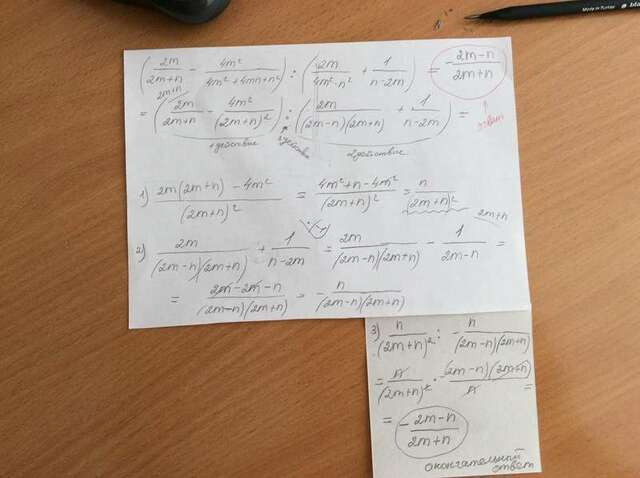 (2m/(2m+n) - 4m²/(4m²+4mn+n²)) : (2m/(4m²-n²) + 1/(n-2m)) = -(2m-n)/(2m+n)
2m+n
= (2m/(2m+n) - 4m²/(2m+n)²) : (2m/((2m-n)(2m+n)) + 1/(n-2m)) =
ответ
1 действие
3 действие
2 действие
1) (2m(2m+n) - 4m²)/(2m+n)² = (4m²+n-4m²)/(2m+n)² = n/(2m+n)²
2m+n
2) 2m/((2m-n)(2m+n)) + 1/(n-2m) = 2m/((2m-n)(2m+n)) - 1/(2m-n) =
= (2m-2m-n)/((2m-n)(2m+n)) = -n/((2m-n)(2m+n))
3) n/(2m+n)² : -n/((2m-n)(2m+n))
= n/(2m+n)² · -(2m-n)(2m+n)/n =
= -(2m-n)/(2m+n)
окончательный
ответ
Made in Turkey